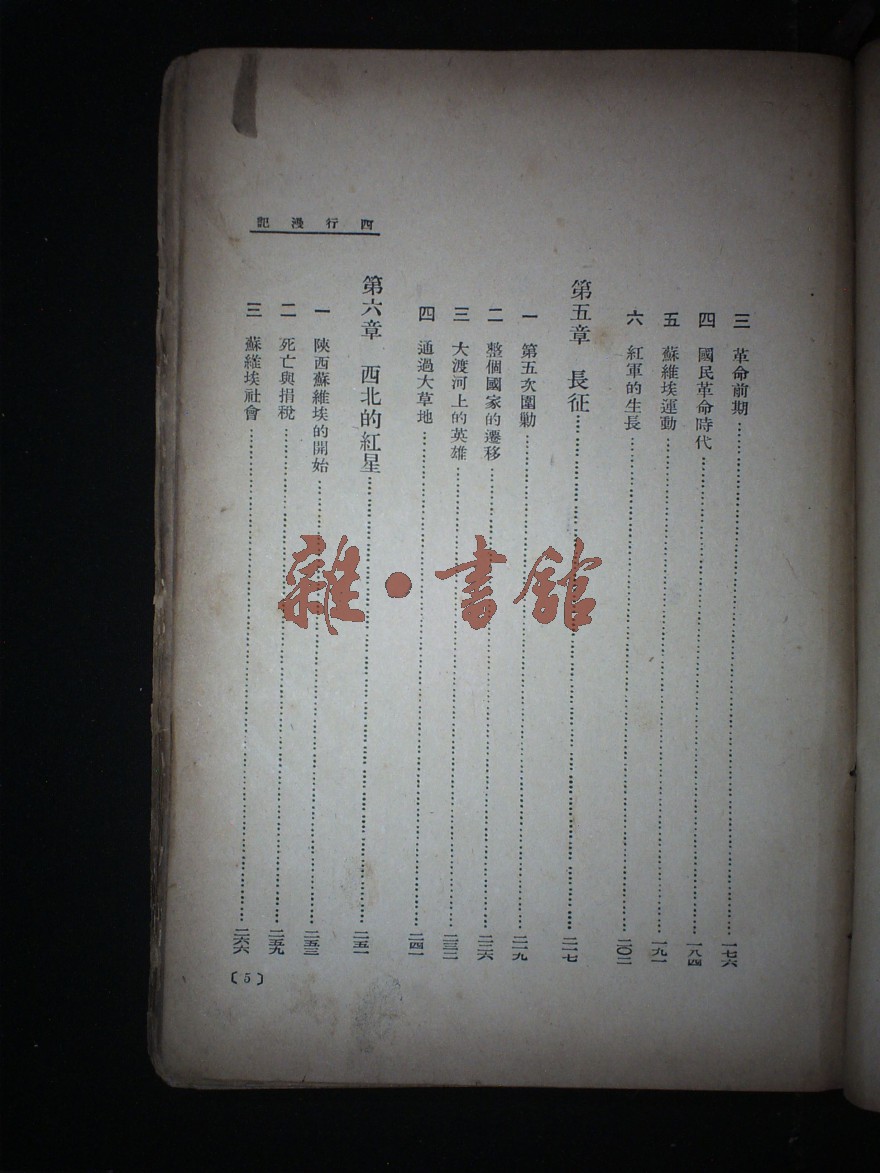 西行漫記
三 革命前期……一七六
四 國民革命時代……一八四
五 蘇維埃運動……一九一
六 紅軍的生長……二〇二
第五章 長征……二一七
一 第五次圍勦……二一九
二 整個國家的遷移……二二六
三 大渡河上的英雄……二三二
四 通過大草地……二四一
第六章 西北的紅星……二五一
一 陝西蘇維埃的開始……二五三
二 死亡與捐稅……二五九
三 蘇維埃社會……二六六
〔5〕
雜·書館